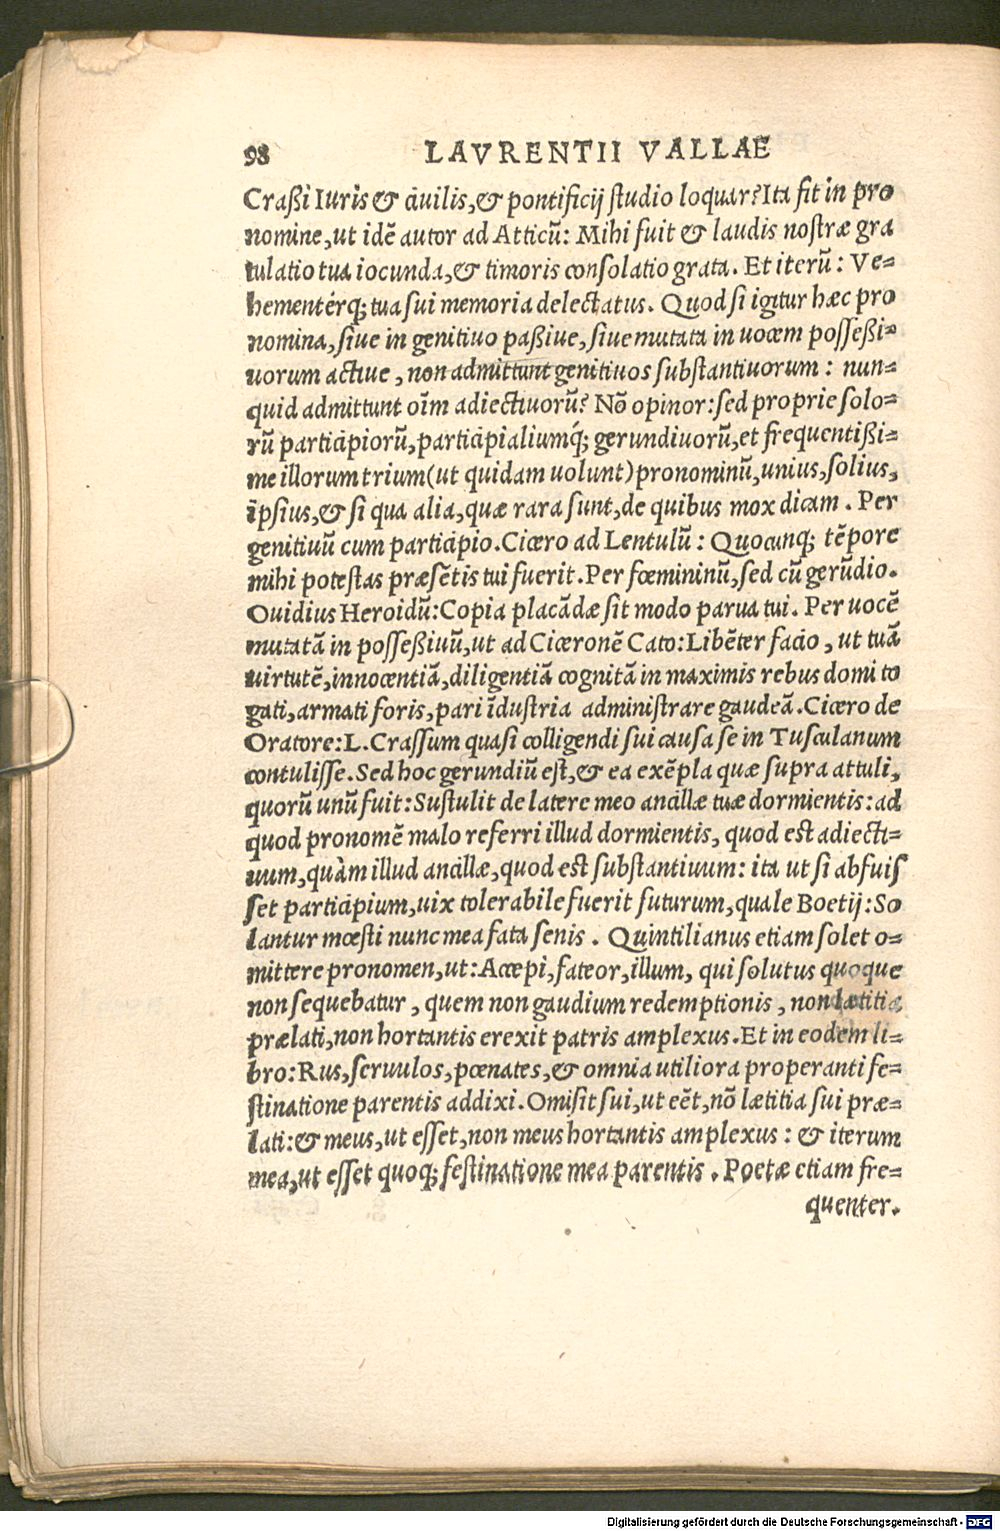 98 LAVRENTII VALLAE
Craßi Iuris & ciuilis, & pontificij studio loquar? Ita fit in pro
nomine, ut idẽ autor ad Atticũ: Mihi fuit & laudis nostræ gra
tulatio tua iocunda, & timoris consolatio grata. Et iterũ: Ve=
hementérq; tua sui memoria delectatus. Quod si igitur hæc pro
nomina, siue in genitiuo paßiue, siue mutata in uocem posseßi=
uorum actiue, non admittunt genitiuos substantiuorum: nun=
quid admittunt oĩm adiectiuorũ? Nõ opinor: sed proprie solo=
rũ participiorũ, participialiumq́; gerundiuorũ, et frequentißi=
me illorum trium (ut quidam uolunt) pronominũ, unius, solius,
ipsius, & si qua alia, quæ rara sunt, de quibus mox dicam. Per
genitiuũ cum participio. Cicero ad Lentulũ: Quocunq; tẽpore
mihi potestas præsẽtis tui fuerit. Per fœmininũ, sed cũ gerũdio.
Ouidius Heroidũ: Copia placãdæ sit modo parua tui. Per uocẽ
mutatã in posseßiuũ, ut ad Ciceronẽ Cato: Libẽter facio, ut tuã
uirtutẽ, innocentiã, diligentiã cognitã in maximis rebus domi to
gati, armati foris, pari ĩdustria administrare gaudeã. Cicero de
Oratore: L. Crassum quasi colligendi sui causa se in Tusculanum
contulisse. Sed hoc gerundiũ est, & ea exẽpla quæ supra attuli,
quorũ unũ fuit: Sustulit de latere meo ancillæ tuæ dormientis: ad
quod pronomẽ malo referri illud dormientis, quod est adiecti=
uum, quàm illud ancillæ, quod est substantiuum: ita ut si abfuis
set participium, uix tolerabile fuerit futurum, quale Boetij: So
lantur mœsti nunc mea fata senis. Quintilianus etiam solet o=
mittere pronomen, ut: Accepi, fateor, illum, qui solutus quoque
non sequebatur, quem non gaudium redemptionis, non lætitia
prælati, non hortantis erexit patris amplexus. Et in eodem li=
bro: Rus, seruulos, pœnates, & omnia utiliora properanti fe=
stinatione parentis addixi. Omisit sui, ut eẽt, nõ lætitia sui præ=
lati: & meus, ut esset, non meus hortantis amplexus: & iterum
mea, ut esset quoq; festinatione mea parentis. Poetæ etiam fre=
quenter.
Digitalisierung gefördert durch die Deutsche Forschungsgemeinschaft - DFG